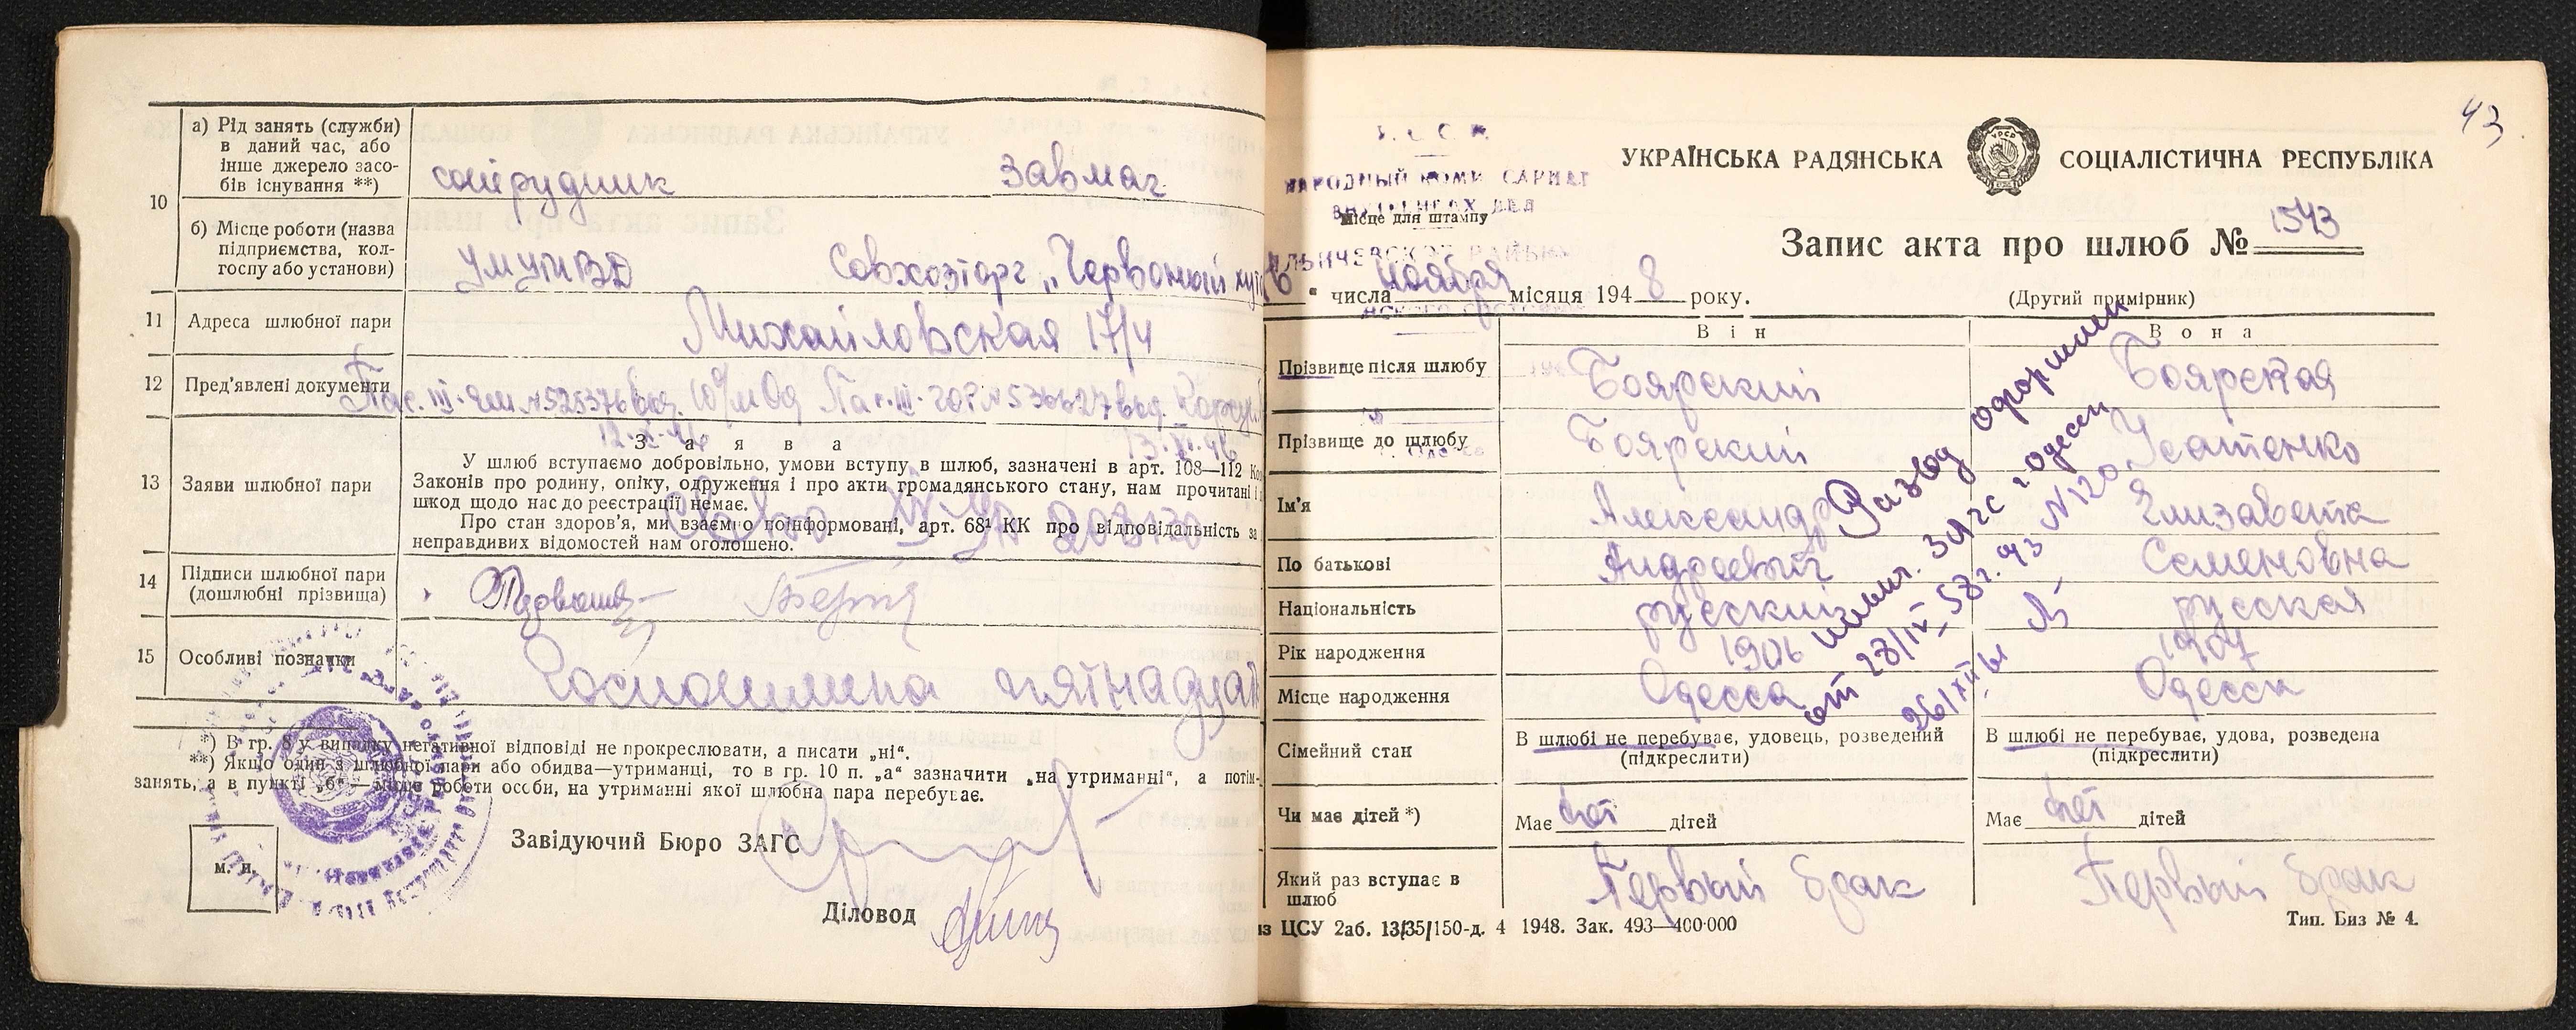 10
а) Рід занять (служби)
в даний час, або
інше джерело засо-
бів існування **)
сотрудник
Завмаг.
б) Місце роботи (назва
підприємства, кол-
госпу або установи)
Совхозторг „Червоный
11
Адреса шлюбної пари
Михайловская 17/4
12
Пред’явлені документи
13
Заяви шлюбної пари
З а я в а
У шлюб вступаємо добровільно, умови вступу в шлюб, зазначені в арт. 108—112
Законів про родину, опіку, одруження і про акти громадянського стану, нам прочитані
шкод щодо нас до реєстрації немає.
Про стан здоров’я, ми взаємно поінформовані, арт. 68¹ КК про відповідальність за
неправдивих відомостей нам оголошено.
14
Підписи шлюбної пари
(дошлюбні прізвища)
15
Особливі позначки
Госпошлина
*) В гр. 8 у випадку негативної відповіді не прокреслювати, а писати „ні“.
**) Якщо один з шлюбної пари або обидва—утриманці, то в гр. 10 п. „а“ зазначити „на утриманні“, а потім-
занять, а в пункті „б“ — місце роботи особи, на утриманні якої шлюбна пара перебуває.
м. п.
Завідуючий Бюро ЗАГС
Діловод
43
УКРАЇНСЬКА РАДЯНСЬКА СОЦІАЛІСТИЧНА РЕСПУБЛІКА
НАРОДНЫЙ КОМИССАРИАТ
ВНУТРЕННИХ ДЕЛ
Місце для штампу
Запис акта про шлюб № 1543
числа ноября місяця 1948 року.
(Другий примірник)
Він
Вона
Прізвище після шлюбу
Боярский
Боярская
Прізвище до шлюбу
Боярский
Усатенко
Ім’я
Александр
Елизавета
По батькові
Андреевич
Семеновна
Національність
русский
русская
Рік народження
1906
1907
Місце народження
Одесса
Одесса
Развод оформлен
ЗАГС г. Одессы
от 28/IV-58 г. №120
Сімейний стан
В шлюбі не перебуває, удовець, розведений
(підкреслити)
В шлюбі не перебуває, удова, розведена
(підкреслити)
Чи має дітей *)
Має нет дітей
Має нет дітей
Який раз вступає в
шлюб
Первый брак
Первый брак
ЦСУ 2аб. 13/35/150-д. 4 1948. Зак. 493—400·000
Тип. Биз № 4.